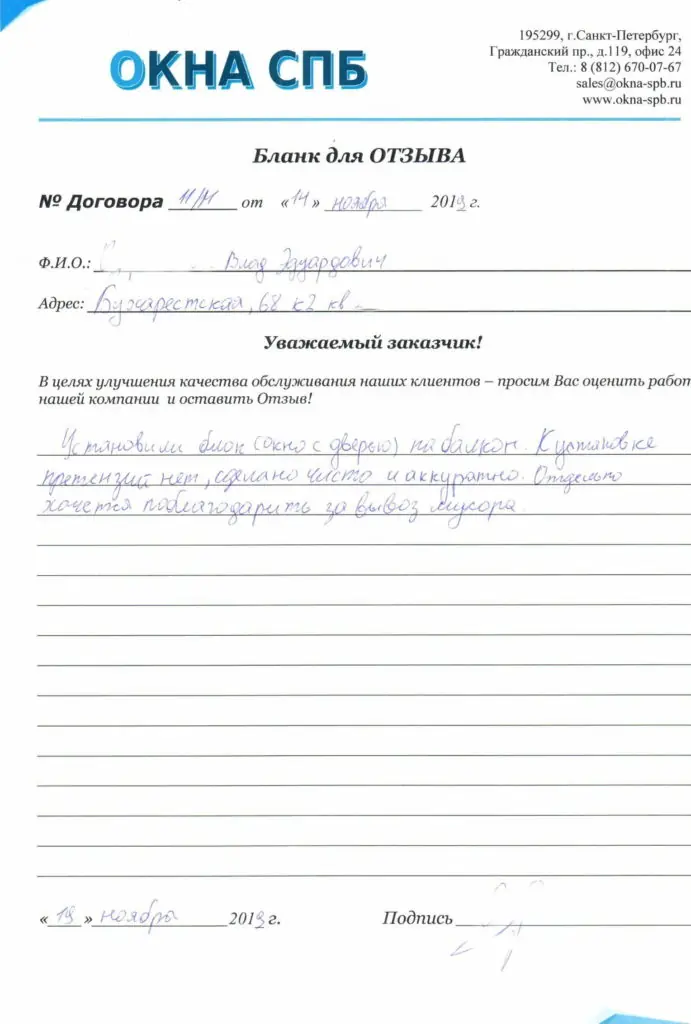 ОКНА СПБ
195299, г.Санкт-Петербург,
Гражданский пр., д.119, офис 24
Тел.: 8 (812) 670-07-67
sales@okna-spb.ru
www.okna-spb.ru
Бланк для ОТЗЫВА
№ Договора от «14» ноября 2019 г.
Ф.И.О.: Влад Эдуардович
Адрес: Бухарестская, 68 к2 кв
Уважаемый заказчик!
В целях улучшения качества обслуживания наших клиентов – просим Вас оценить работ
нашей компании и оставить Отзыв!
Установили блок (окно с дверью) на балкон. К установке
претензий нет, сделано чисто и аккуратно. Отдельно
хочется поблагодарить за вывоз мусора.
«19» ноября 2019 г. Подпись